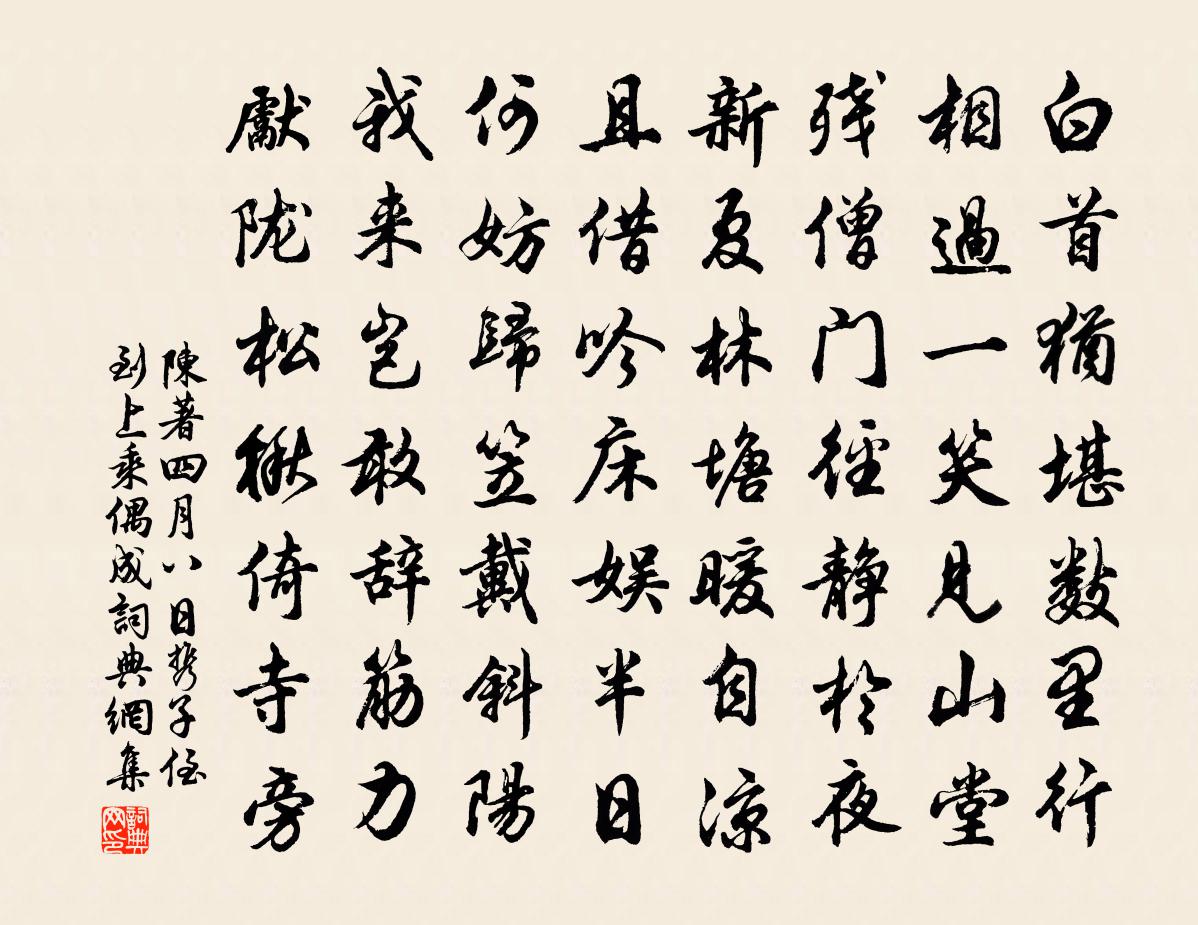 白首猶堪數里行
相過一笑見山堂
殘僧門徑靜於夜
新夏林塘暖自涼
且借吟床娛半日
何妨歸笠戴斜陽
我来豈敢辞筋力
獻陇松楸倚寺旁
陳著四月八日携子侄
到上乘偶成詞典網集
詞典
网印